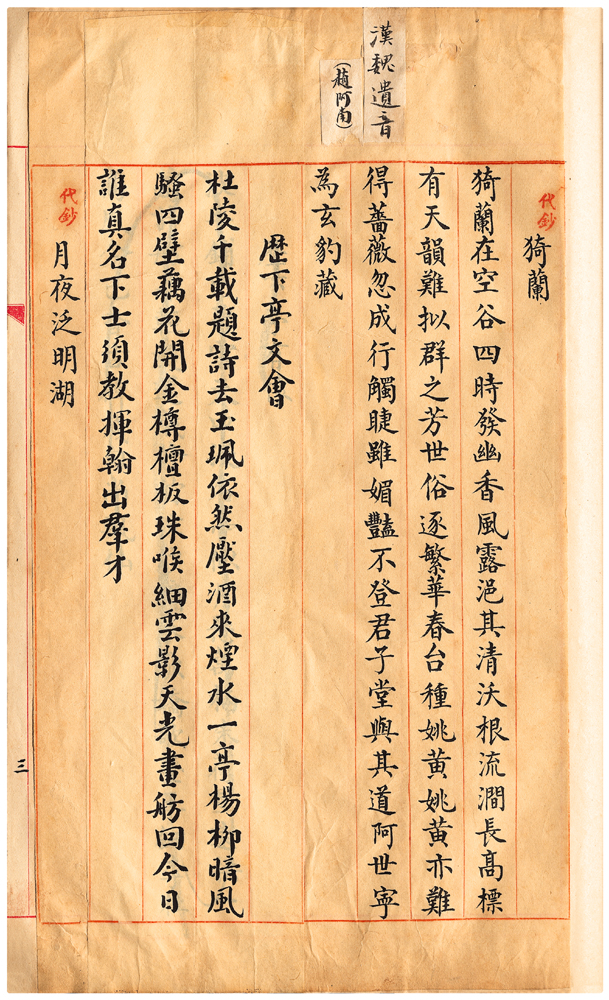 漢魏遺音
(趙阿南)
代鈔
猗蘭
猗蘭在空谷四時發幽香風露浥其清沃根流澗長高標
有天韻難拟群之芳世俗逐繁華春台種姚黄姚黄亦難
得薔薇忽成行觸睫雖媚豔不登君子堂與其道阿世寧
為玄豹藏
歴下亭文會
杜陵千載題詩去玉珮依然壓酒來煙水一亭楊柳暗風
騷四壁藕花開金樽檀板珠喉細雲影天光畫舫回今日
誰真名下士須教揮翰出羣才
代鈔
月夜泛明湖
三